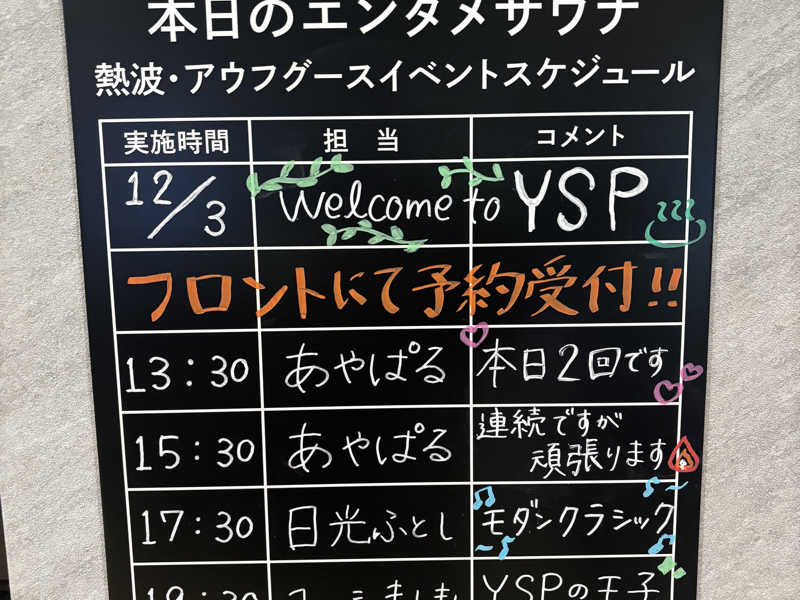 本日のエンタメサウナ
熱波・アウフグースイベントスケジュール
実施時間 担当 コメント
12/3 Welcome to YSP
フロントにて予約受付!!
13:30 あやぱる 本日2回です
15:30 あやぱる 連続ですが
頑張ります
17:30 日光ふとし モダンクラシック
YSPの王子